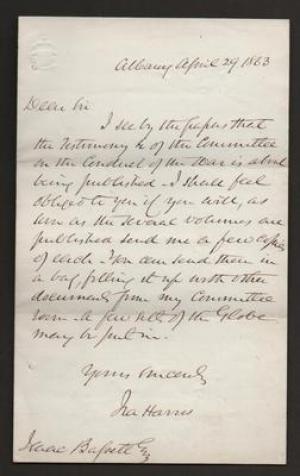 Albany April 29 1863
Dear Sir
I see by the papers that
the Testimony &c of the Committee
on the Conduct of the War is about
being published. I shall feel
obliged to you if you will, as
soon as the several volumes are
published send me a few copies
of each. You can send them in
a bag, filling it up with other
documents from my Committee
room. A few of the Globe
may be put in.
Yours Sincerely
Ira Harris
Isaac Bassett Esq